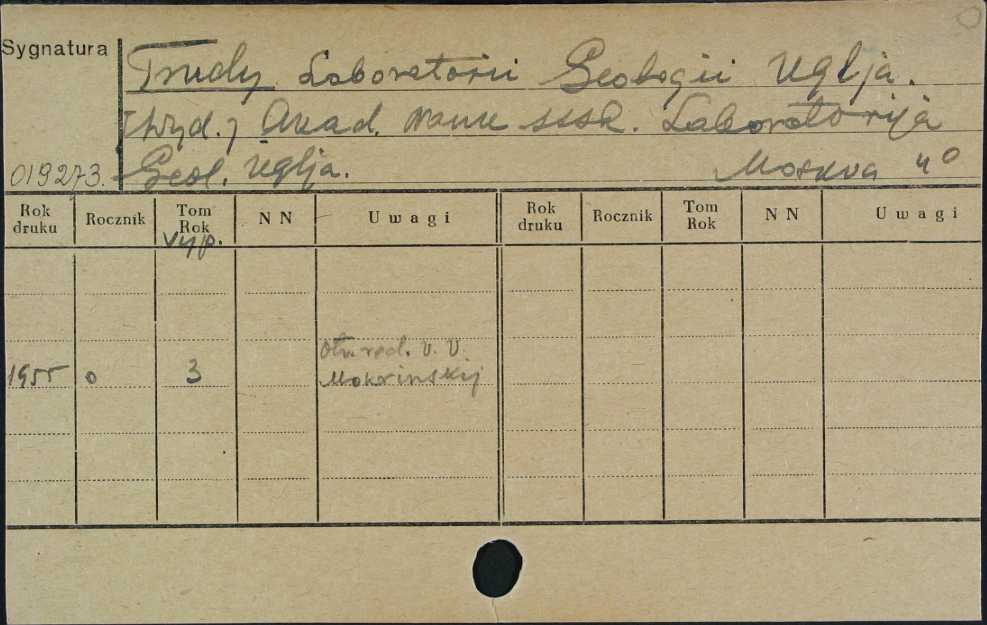 Sygnatura
Trudy Laboratorii Geologii Uglja.
[Wyd.] Akad. Nauk SSSR. Laboratorija
019273. Geol. Uglja. Moskva 4°
Rok druku Rocznik Tom Rok NN Uwagi Rok druku Rocznik Tom Rok NN Uwagi
Vyp.
Otv. red. V. V.
1955 0 3 Mokrinskij